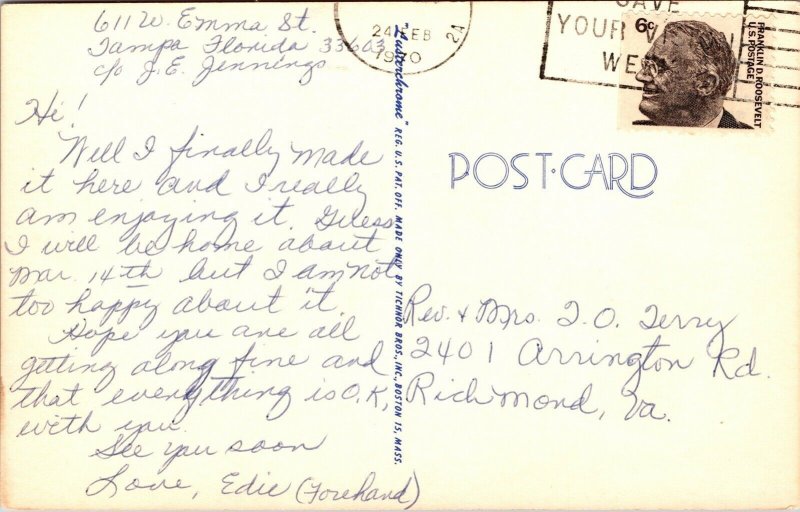 611 W. Emma St.
Tampa Florida 33603
c/o J.E. Jennings
Hi!
Well I finally made
it here and I really
am enjoying it. Guess
I will be home about
Mar. 14th but I am not
too happy about it.
Hope you are all
getting along fine and
that everything is O.K.,
with you.
See you soon
Love, Edie (Forehand)
"Lusterchrome" REG. U.S. PAT. OFF. MADE ONLY BY TICHNOR BROS., INC., BOSTON 15, MASS.
24 FEB
1970
SAVE
YOUR
WE
6c
FRANKLIN D. ROOSEVELT
U.S. POSTAGE
POST·CARD
Rev. & Mrs. I.O. Terry
2401 Arrington Rd.
Richmond, Va.